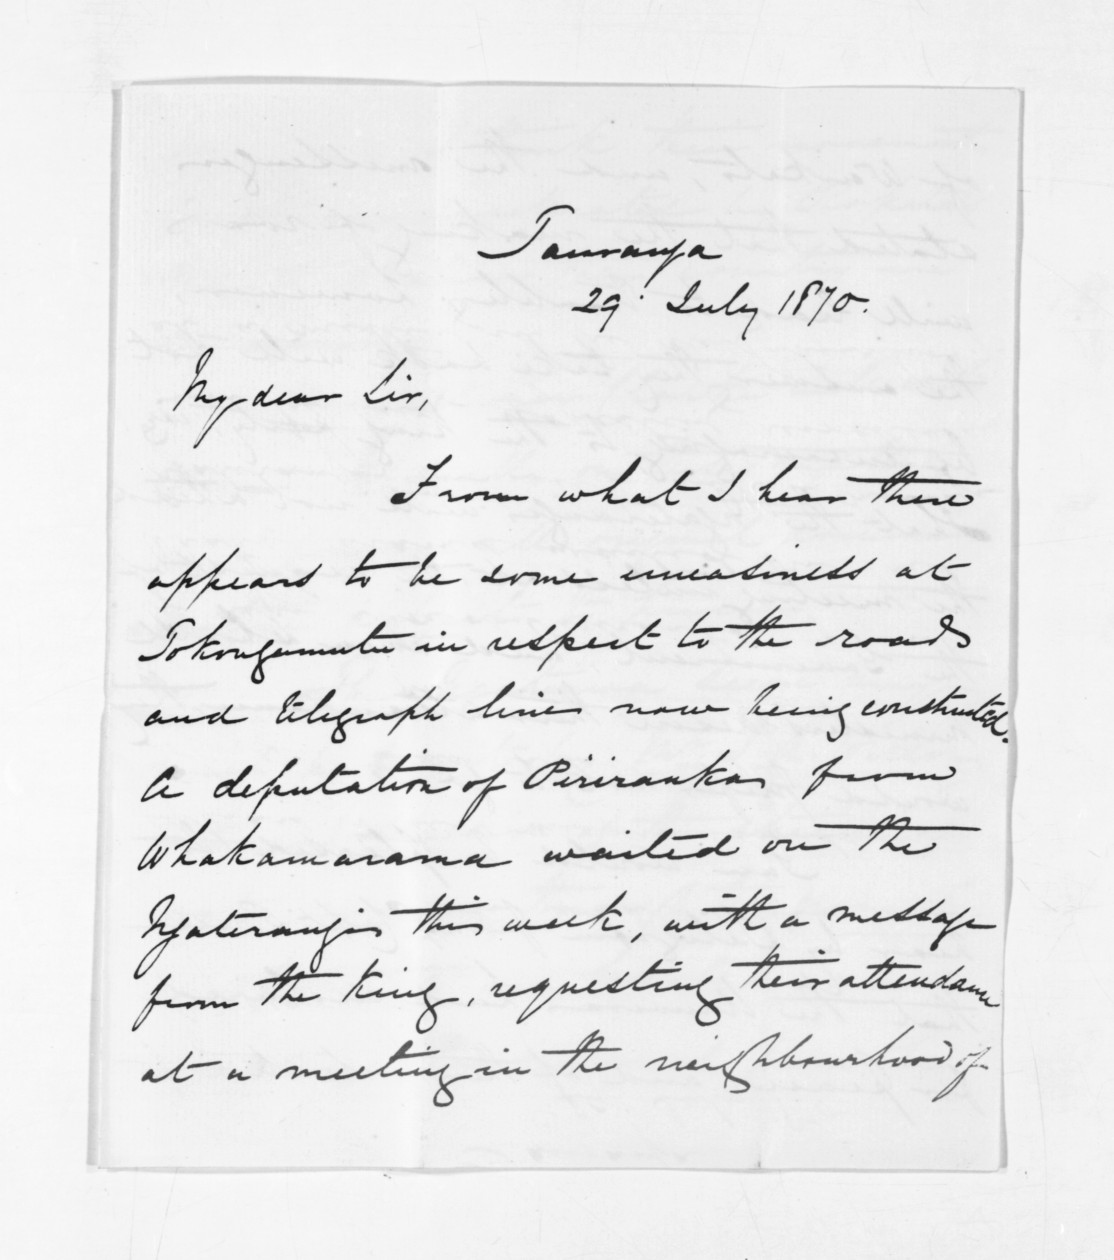 Tauranga
29 July 1870.
My dear Sir,
From what I hear there
appears to be some uneasiness at
Tokongamutu in respect to the roads
and telegraph lines now being constructed.
A deputation of Pirirankas from
Whakamarama waited on the
Ngaterangis this week, with a message
from the King, requesting their attendance
at a meeting in the neighbourhood of